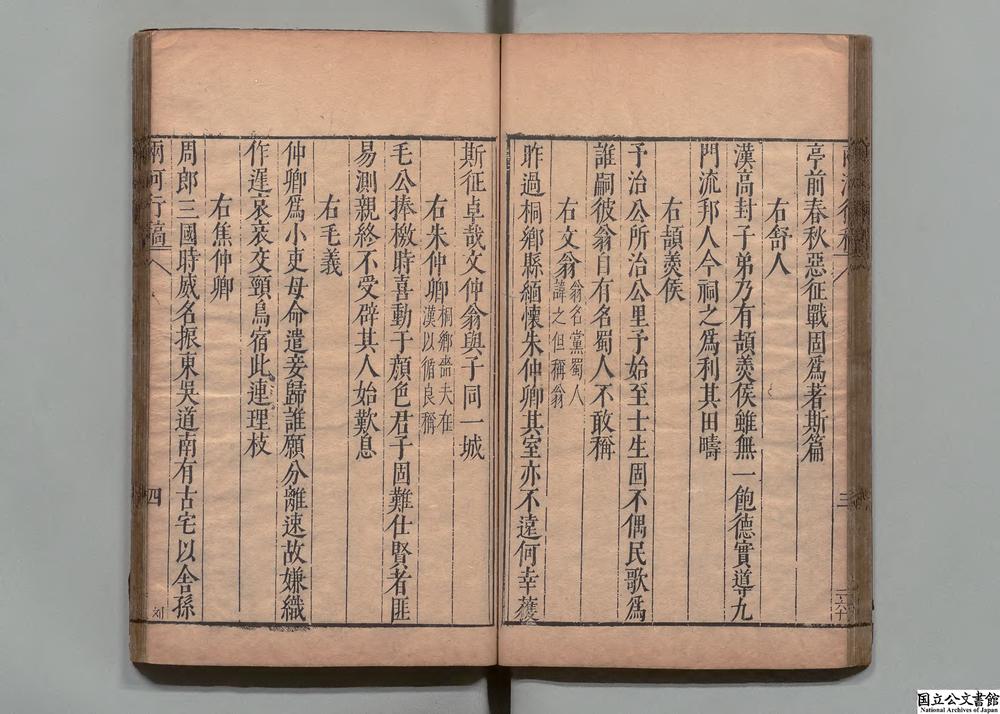 亭前春秋惡征戰固爲者斯篇
右舒人
漢高封子弟乃有頡羹侯雖無一飽德實導九
門流邦人今祠之爲利其田疇
右頡羹侯
予治公所治公里予始至士生固不偶民歌爲
誰嗣彼翁自有名蜀人不敢稱
右文翁
翁名黨蜀人
諱之但稱翁
昨過桐鄉縣緬懷朱仲卿其室亦不遠何幸蒦
斯征卓哉文仲翁與子同一城
右朱仲卿
桐鄉嗇夫在
漢以循良稱
毛公捧檄時喜動于顔色君子固難仕賢者匪
易測親終不受辟其人始歎息
右毛義
仲卿爲小吏母命遣妾歸誰願分離速故嫌織
作遲哀哀交頸鳥宿此連理枝
右焦仲卿
周郎三國時威名振東吳道南有古宅以舍孫
兩河行稿
四
三
国立公文書館
National Archives of Japan